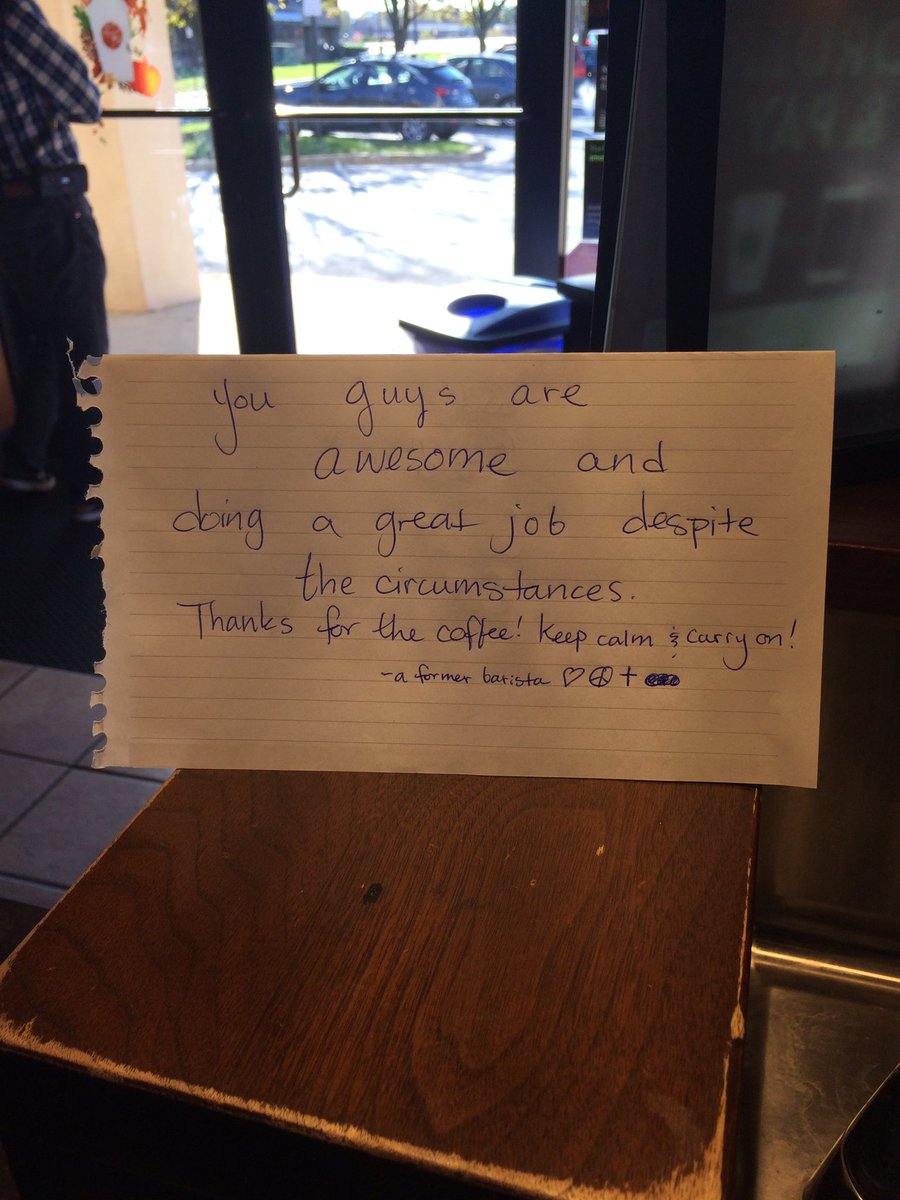 you guys are
awesome and
doing a great job despite
the circumstances.
Thanks for the coffee! Keep calm & carry on!
-a former barista ♡☮+